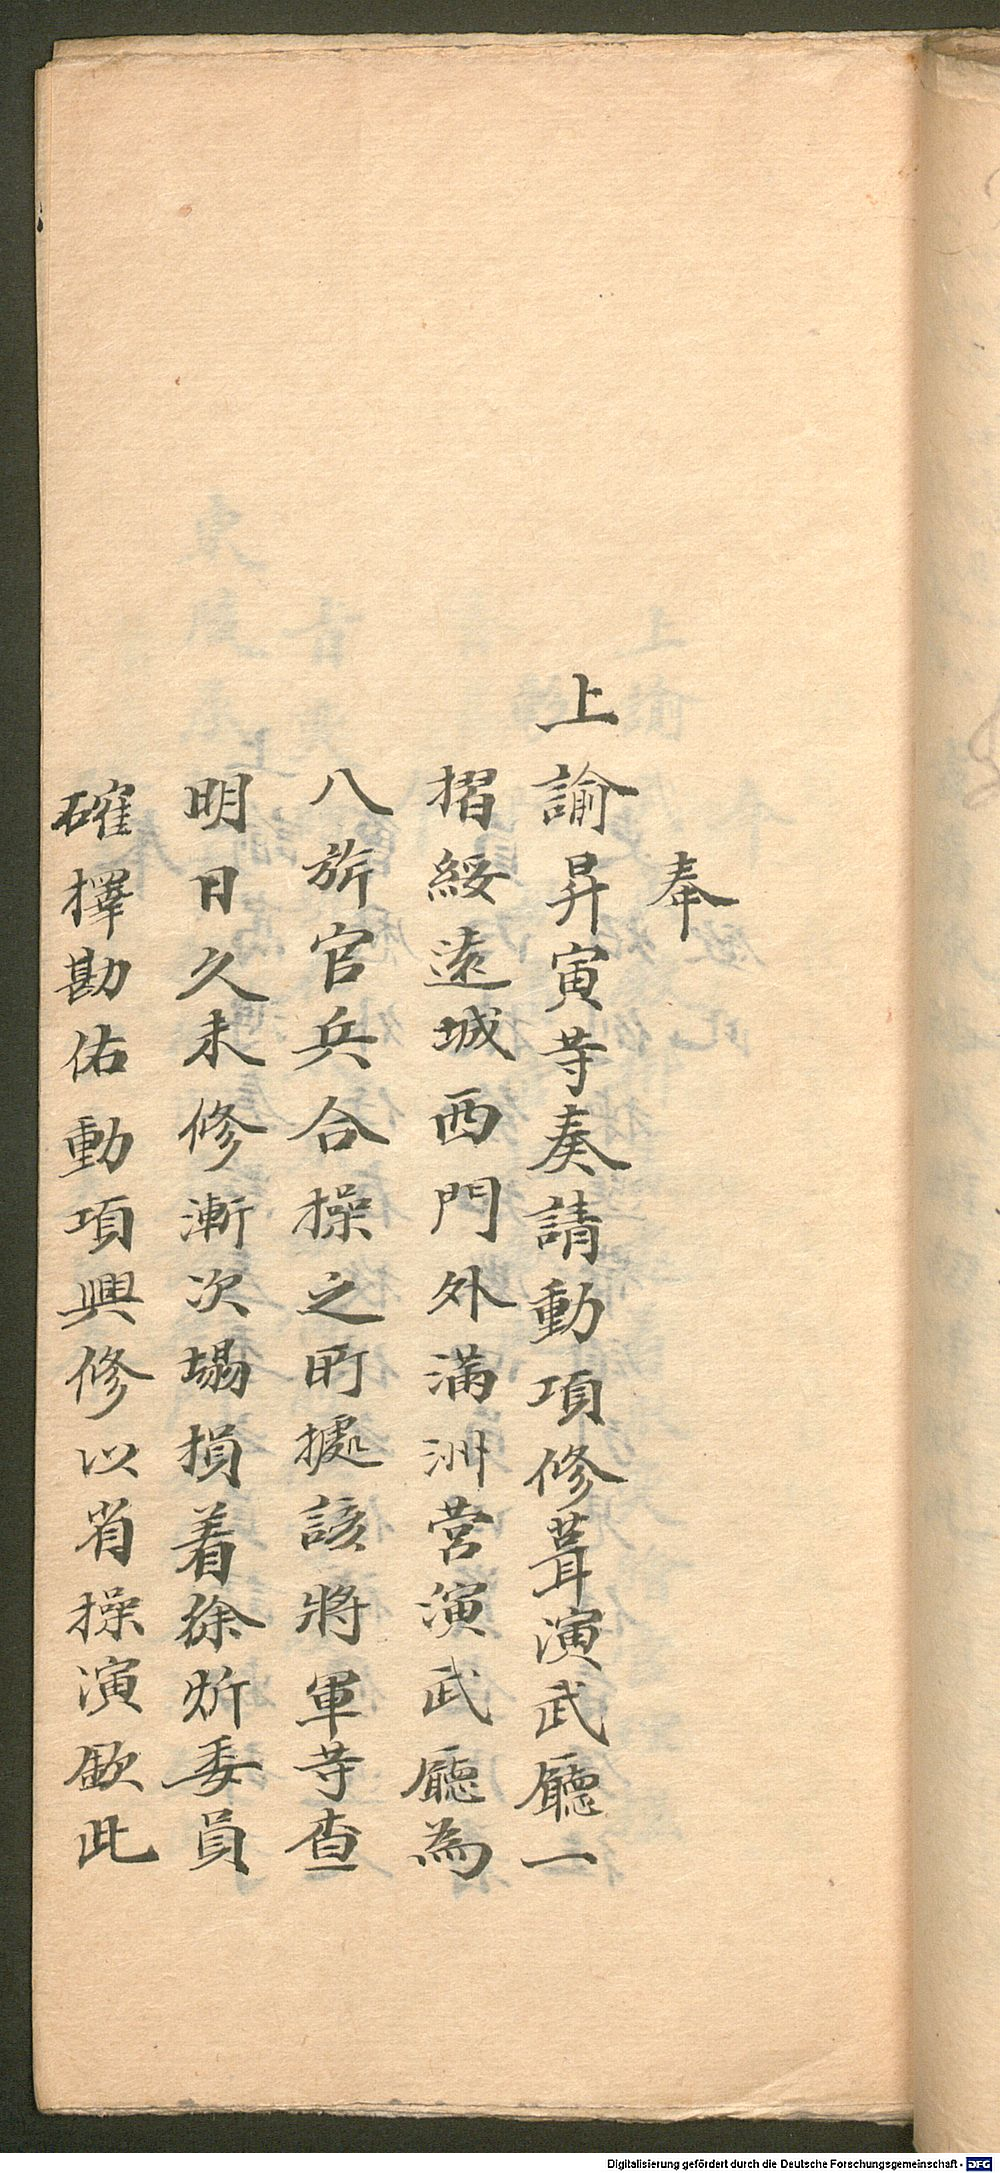 奉
上諭昇寅等奏請動項修葺演武廳一
摺綏遠城西門外滿洲營演武廳為
八旂官兵合操之所據該將軍等查
明日久未修漸次塌損着徐炘委員
確擇勘佑動項興修以肖操演欽此
Digitalisierung gefördert durch die Deutsche Forschungsgemeinschaft - DFG